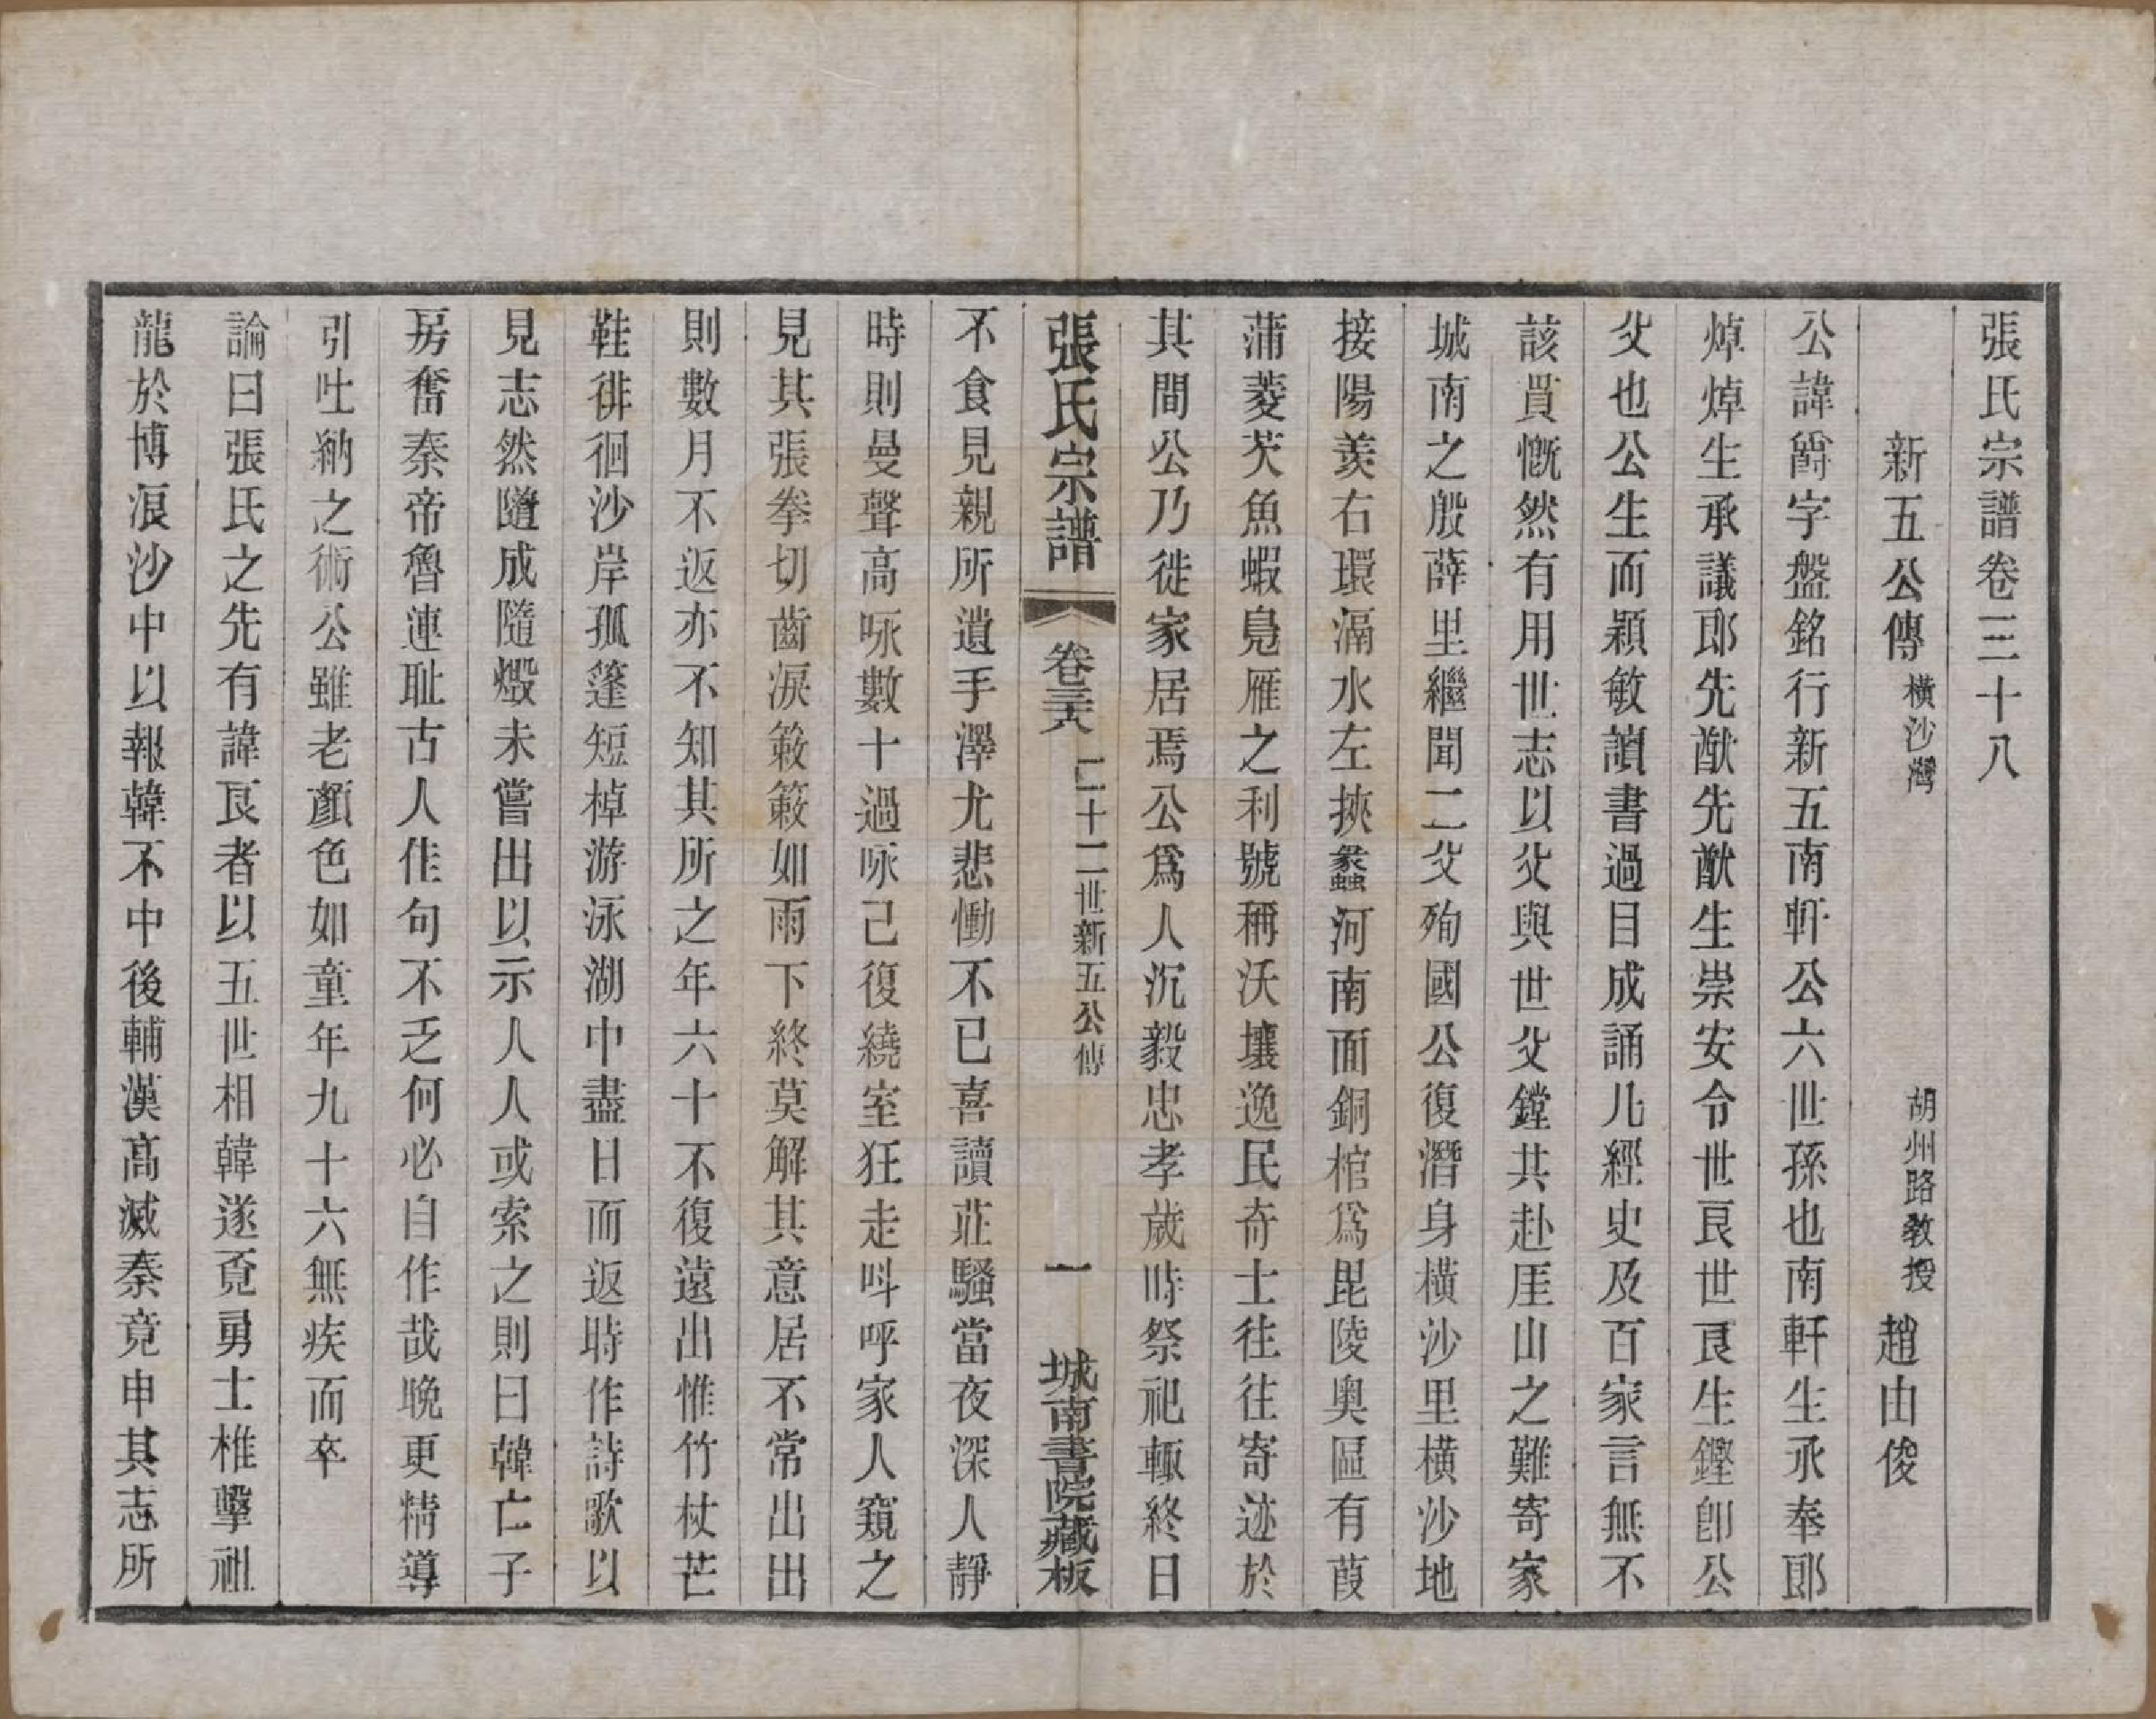 張氏宗譜卷三十八
新五公傳 橫沙灣 胡州路教授 趙由俊
公諱爵字盤銘行新五南軒公六世孫也南軒生生承奉郎
焯焯生承議郎先猷先猷生崇安令世良世良生鏗卽公
父也公生而穎敏讀書過目成誦凡經史及百家言無不
該貫慨然有用世志以父與世父鏜共赴厓山之難寄家
城南之殷薛里繼聞二父殉國公復潛身橫沙里橫沙地
接陽羨右環滆水左挾蠡河南面銅棺爲毘陵奧區有葭
蒲菱芡魚蝦鳧雁之利號稱沃壤逸民奇士往往寄迹於
其間公乃徙家居焉公爲人沉毅忠孝歲時祭祀輒終日
張氏宗譜 卷三十八 二十二世新五公傳 一 城南書院藏板
不食見親所遺手澤尤悲慟不已喜讀莊騷當夜深人靜
時則曼聲高咏數十過咏已復繞室狂走呌呼家人窺之
見其張拳切齒淚簌簌如雨下終莫解其意居不常出出
則數月不返亦不知其所之年六十不復遠出惟竹杖芒
鞋徘徊沙岸孤篷短棹游泳湖中盡日而返時作詩歌以
見志然隨成隨燬未嘗出以示人人或索之則曰韓亡子
房奮秦帝魯連耻古人佳句不乏何必自作哉晚更精導
引吐納之術公雖老顏色如童年九十六無疾而卒
論曰張氏之先有諱良者以五世相韓遂覓勇士椎擊祖
龍於博浪沙中以報韓不中後輔漢高滅秦竟申其志所